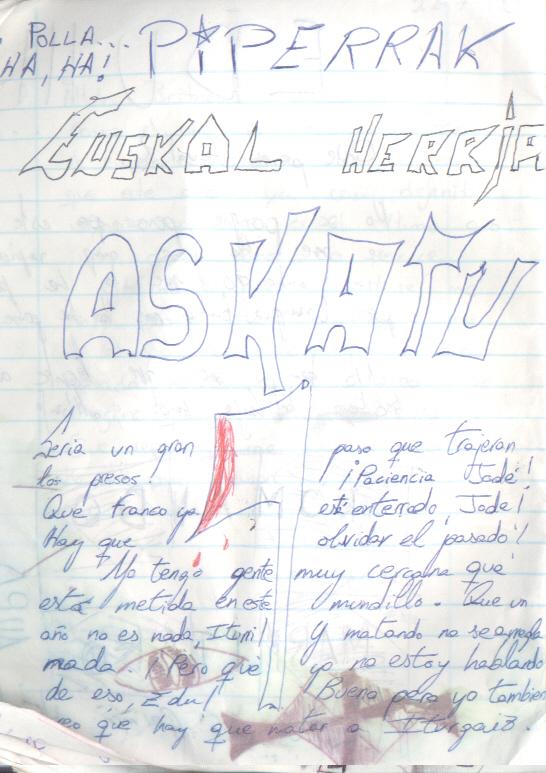 POLLA...
HA, HA!
PIPERRAK
EUSKAL HERRIA
ASKATU
Sería un gran paso que trajeran
los presos. ¡Paciencia Jade!
Que Franco ya está enterrado, Jade!
Hay que olvidar el pasado!
Yo tengo gente muy cercana que
está metida en este mundillo. Que un
año no es nada, Itoni! Y matando no se arregla
nada. ¡Pero que yo no estoy hablando
de eso, Edu! Bueno pero yo tambien
creo que hay que matar a Iturgaiz.